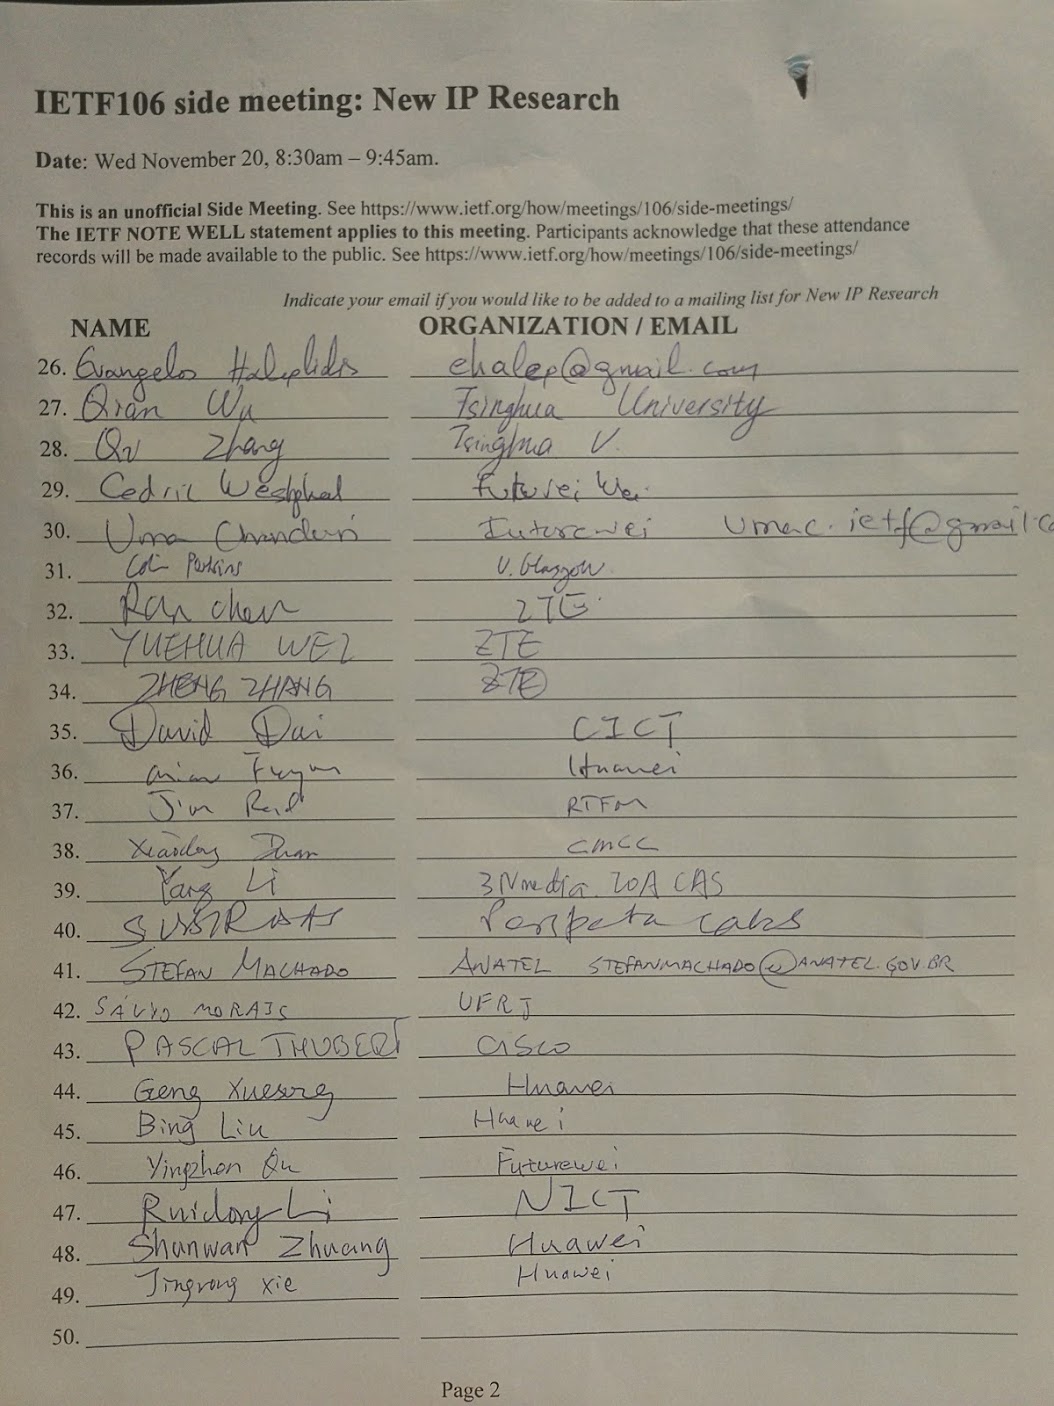 IETF106 side meeting: New IP Research
Date: Wed November 20, 8:30am – 9:45am.
This is an unofficial Side Meeting. See https://www.ietf.org/how/meetings/106/side-meetings/
The IETF NOTE WELL statement applies to this meeting. Participants acknowledge that these attendance
records will be made available to the public. See https://www.ietf.org/how/meetings/106/side-meetings/
Indicate your email if you would like to be added to a mailing list for New IP Research
NAME ORGANIZATION / EMAIL
26. Evangelos Haleplidis ehalep@gmail.com
27. Qian Wu Tsinghua University
28. Zhang Tsinghua U.
29. Cedric Westphal Futurei Wei
30. Uma Chunduri Futurewei umac.ietf@gmail.co
31. Colin Perkins U. Glasgow
32. Ran Chen ZTE
33. YUEHUA WEI ZTE
34. ZHENG ZHANG ZTE
35. David Dai CICT
36. Huawei
37. Jim Reid RTFM
38. Xiaodong Duan CMCC
39. Yang Li 3Nmedia CAS
40. Labs
41. STEFAN MACHADO ANATEL STEFANMACHADO@ANATEL.GOV.BR
42. SÁVYO MORAIS UFRJ
43. PASCAL THUBERT CISCO
44. Geng Xuesong Huawei
45. Bing Liu Huawei
46. Yingzhen Qu Futurewei
47. Ruidong Li NICT
48. Shunwan Zhuang Huawei
49. Jingrong Xie Huawei
50.
Page 2